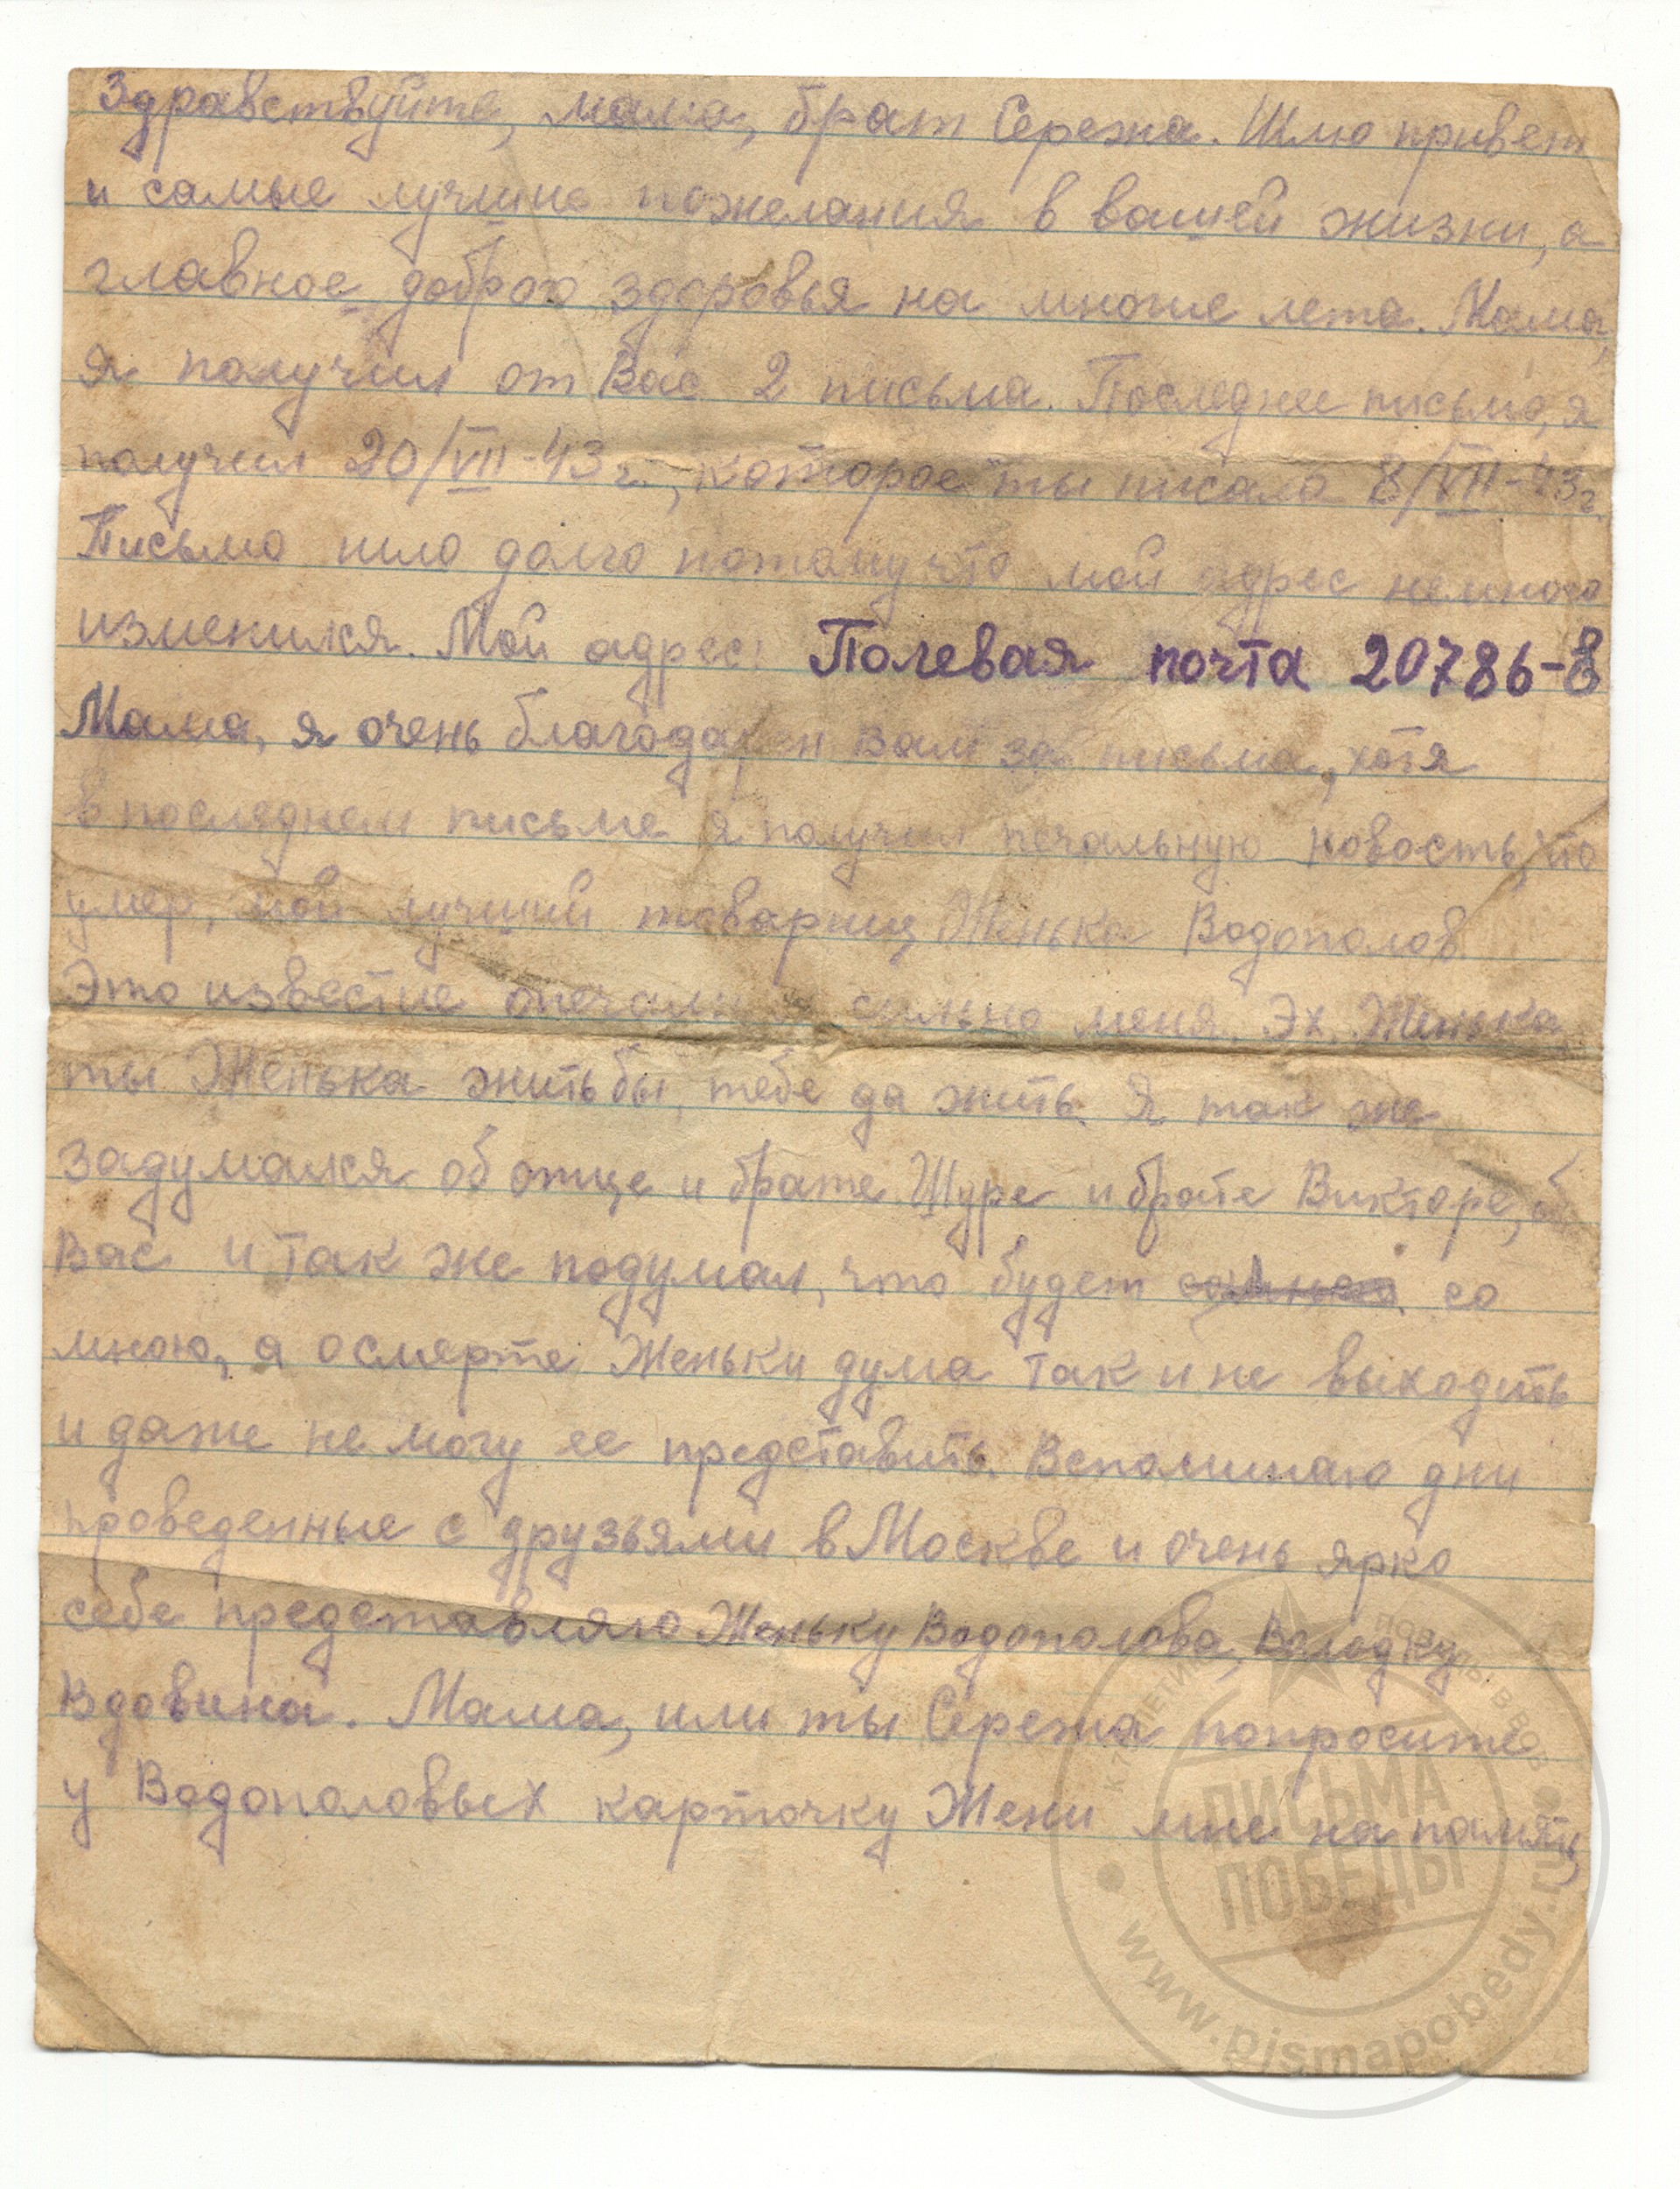 Здравствуйте, мама, брат Сережа. Шлю привет
и самые лучшие пожелания в вашей жизни, а
главное доброго здоровья на многие лета. Мама,
я получил от Вас 2 письма. Последнее письмо, я
получил 20/VII-43г., которое ты писала 8/VII-43г.
Письмо шло долго потому что мой адрес немного
изменился. Мой адрес: Полевая почта 20786-в
Мама, я очень благодарен Вам за письма, хотя
в последнем письме я получил печальную новость, что
умер, мой лучший товарищ Женька Водополов.
Это известие опечалило сильно меня. Эх. Женька
ты Женька жить бы, тебе да жить. Я так же
задумался об отце и брате Шуре и брате Викторе, о
Вас и так же подумал, что будет со
мною, а о смерте Женьки дума так и не выходить
и даже не могу ее представить. Вспоминаю дни
проведенные с друзьями в Москве и очень ярко
себе представляю Женьку Водополова, Володьку
Вдовина. Мама, или ты Сережа попросите
у Водополовых карточку Жени мне на память,
ПОБЕДЫ В ВОВ
ПИСЬМА
ПОБЕДЫ
www.pismapobedy.ru